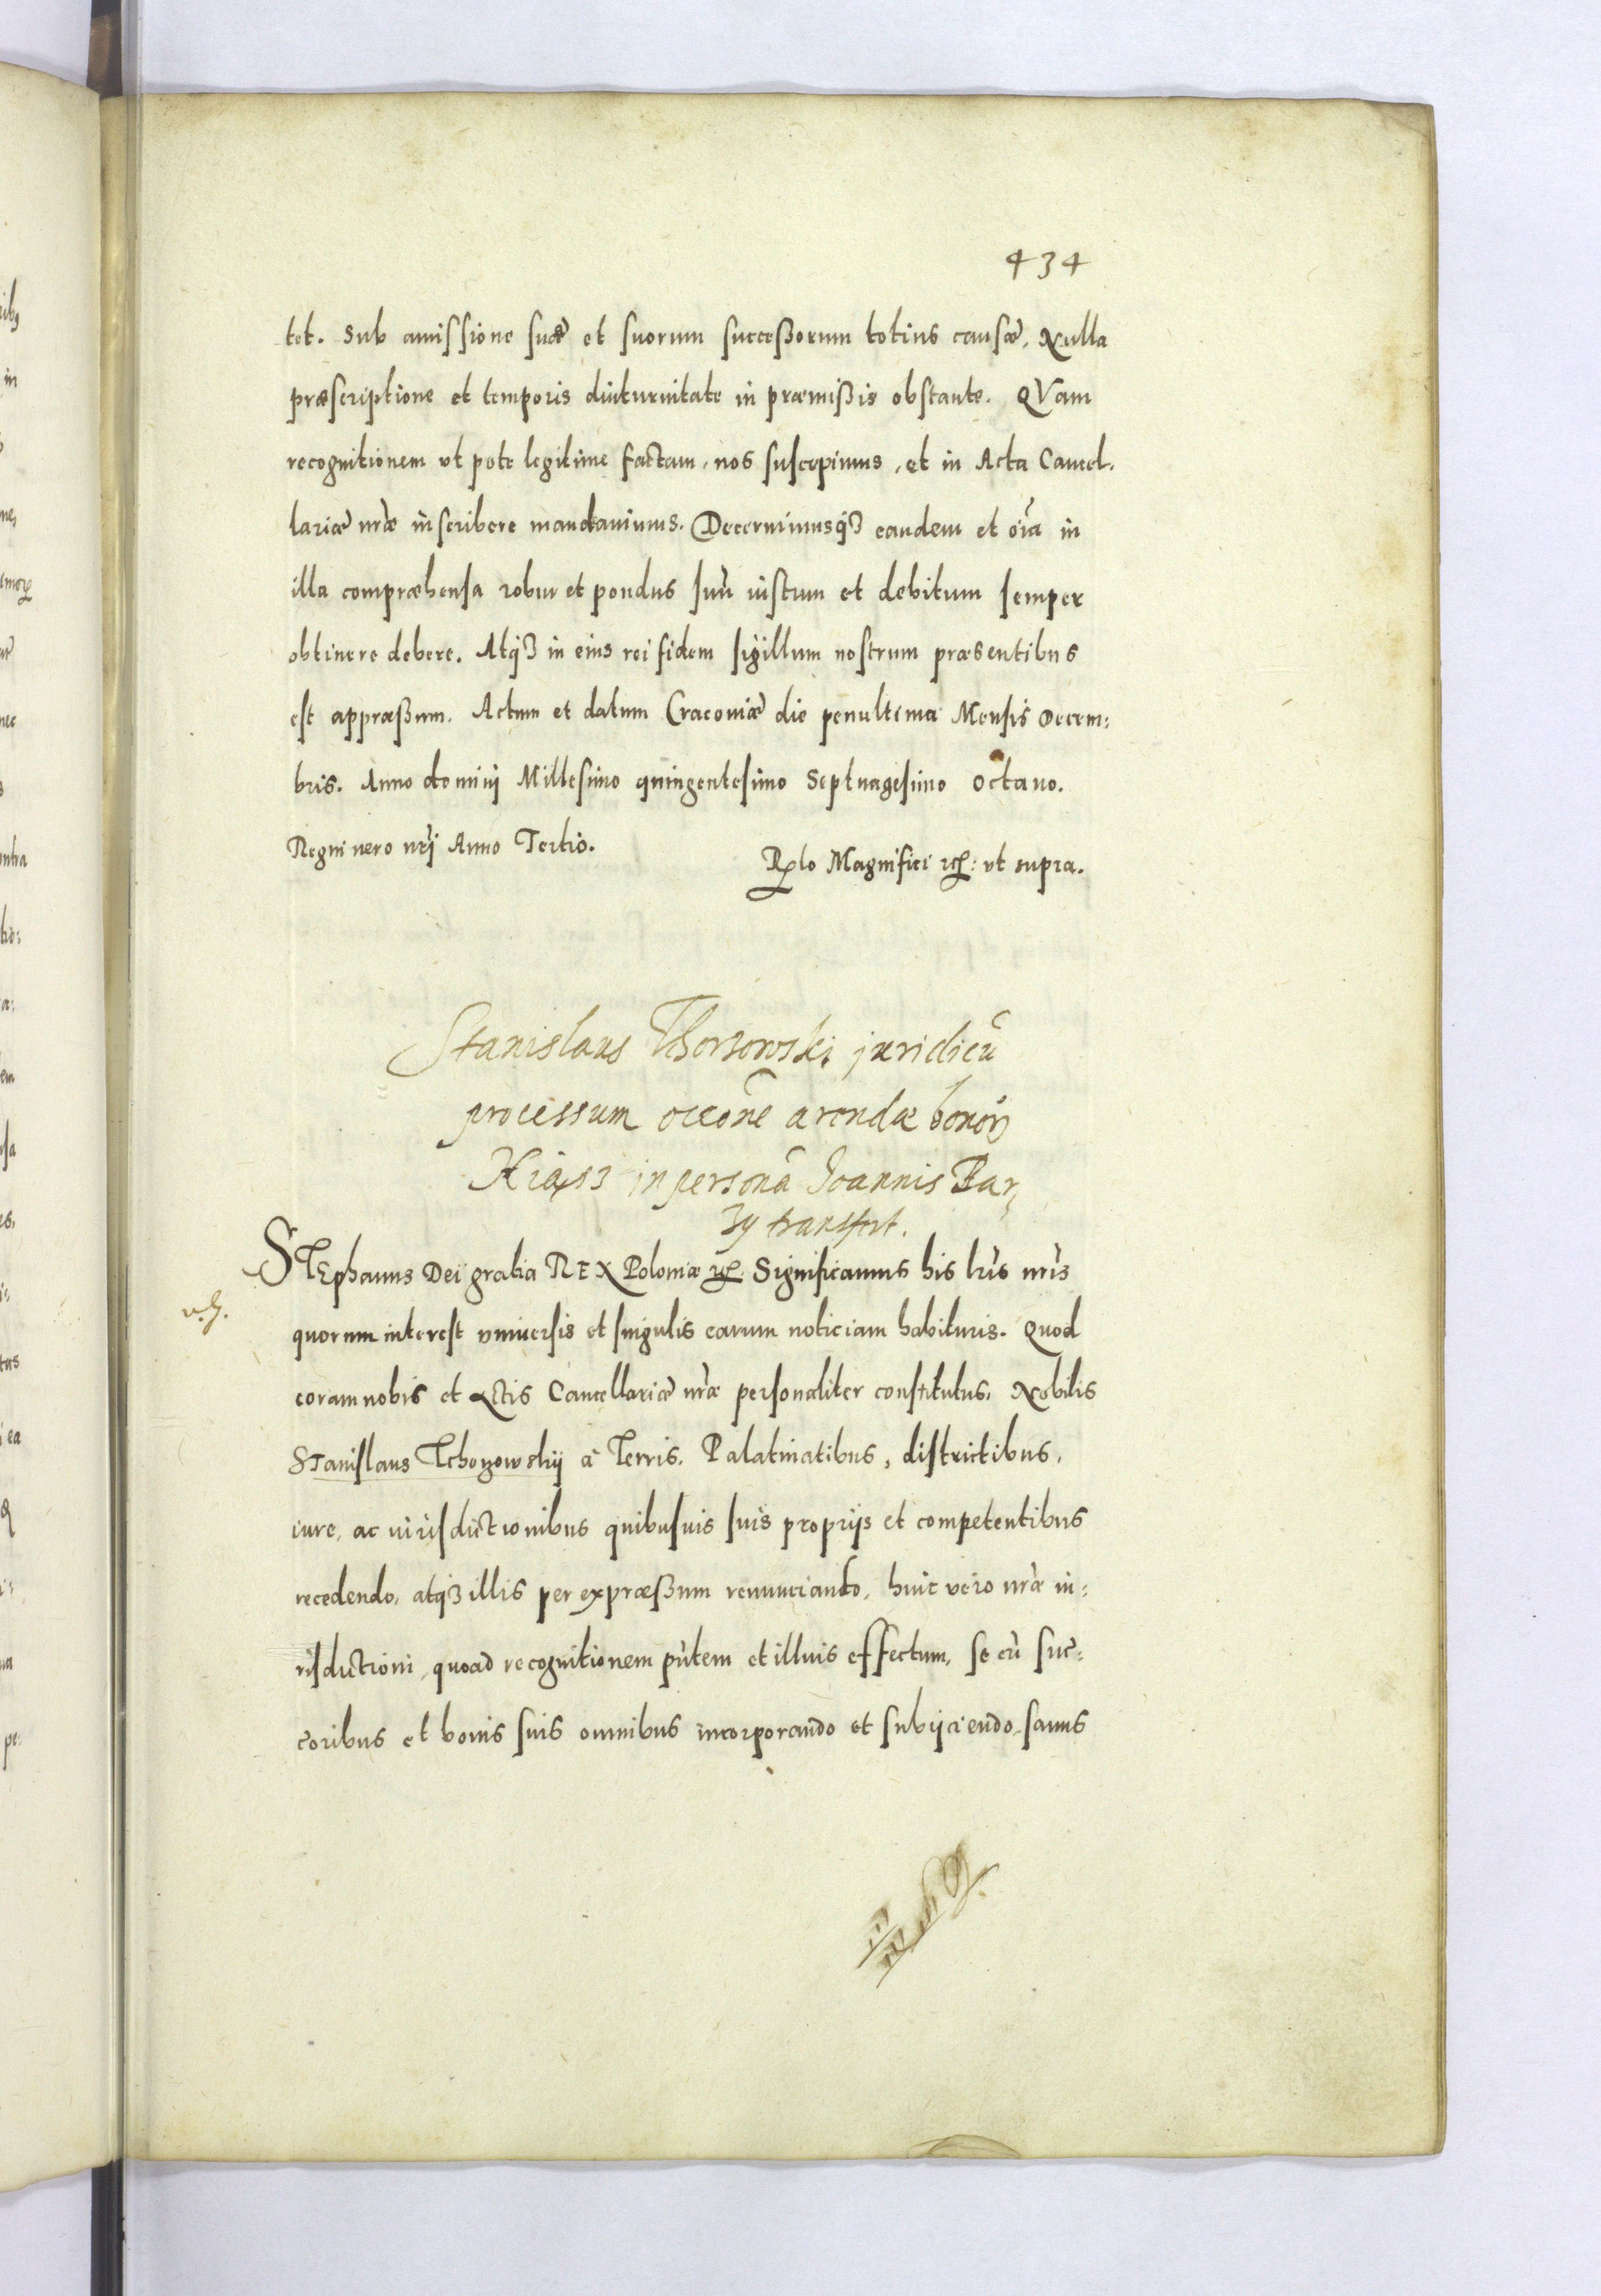 434
tet. Sub amissione suæ et suorum succeßorum totius causæ, Nulla
præscriptione et temporis diuturnitate in præmißis obstante. QVam
recognitionem vt pote legitime factam, nos suscepimus, et in Acta Cancel,
lariæ nr̃æ inscribere mandauimus. Decernimusq3 eandem et oĩa in
illa compræhensa robur et pondus suũ iustum et debitum semper
obtinere debere. Atq3 in eius rei fidem sigillum nostrum præsentibus
est appræßum. Actum et datum Cracouiæ die penultima Mensis Decem:
bris. Anno domini Millesimo quingentesimo Septuagesimo octauo.
Regni uero nr̃i Anno Tertio.
Rela Magnifici etc: vt supra.
Stanislaus juridicũ
processum occõne arendæ bonor
Kiąsz in personã Joannis Bar,
zy transfert.
STEphanus Dei gratia REX Poloniæ etc. Significamus his lr̃is nr̃is
quorum interest vniuersis et singulis earum noticiam habituris. Quod
coram nobis et Actis Cancellariæ nr̃æ personaliter constitutus, Nobilis
Stanislaus à Terris, Palatinatibus, districtibus,
iure, ac iurisdictionibus quibusuis suis proprijs et competentibus
recedendo, atq3 illis per expræßum renunciando, huic vero nr̃æ iu:
risdictioni, quoad recognitionem pñtem et illius effectum, se cũ suc:
coribus et bonis suis omnibus incorporando et subijciendo, sanus